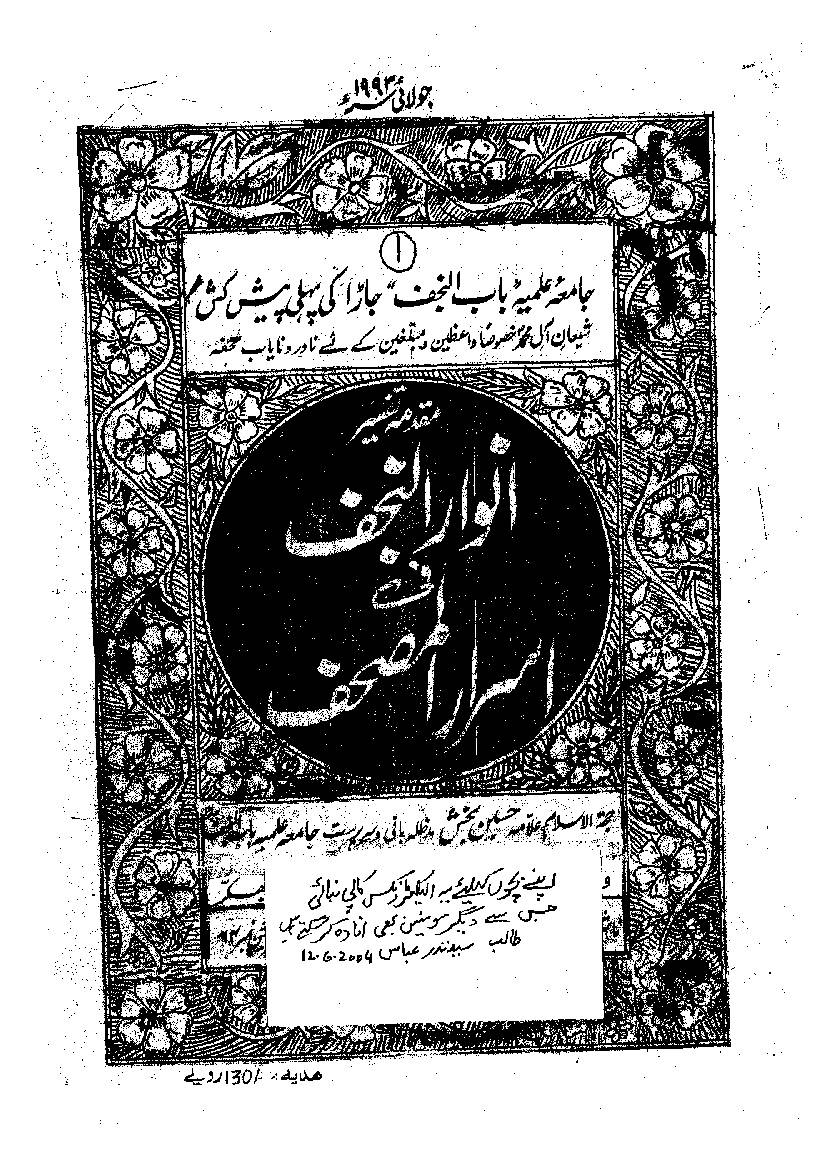 جولائی ۱۹۹۴ء
۱
جامعۂ علمیہ باب النجف" جاڑا کی پہلی پیش کش
شیعان آل محمدؐ خصوصاً واعظین و مبلغین کے لئے نادر و نایاب تحفہ
مقدمہ تفسیر
انوار النجف
فی
اسرار المصحف
حجۃ الاسلام علامہ حسین بخش مدظلہ بانی و سرپرست جامعہ علمیہ باب النجف
اپنے بچوں کیلئے یہ الیکٹرونکس کاپی بنائی
جس سے دیگر مومنین بھی افادہ کر سکتے ہیں
طالب سید نذر عباس 12.6.2004
ھدیہ :- /130 روپے